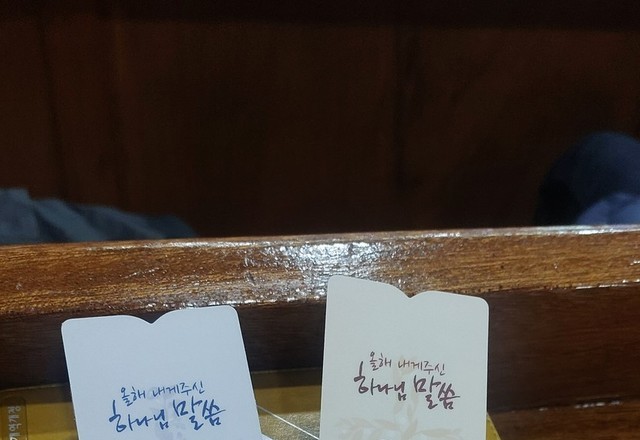 올해 내게주신
하나님 말씀
올해 내게주신
하나님 말씀